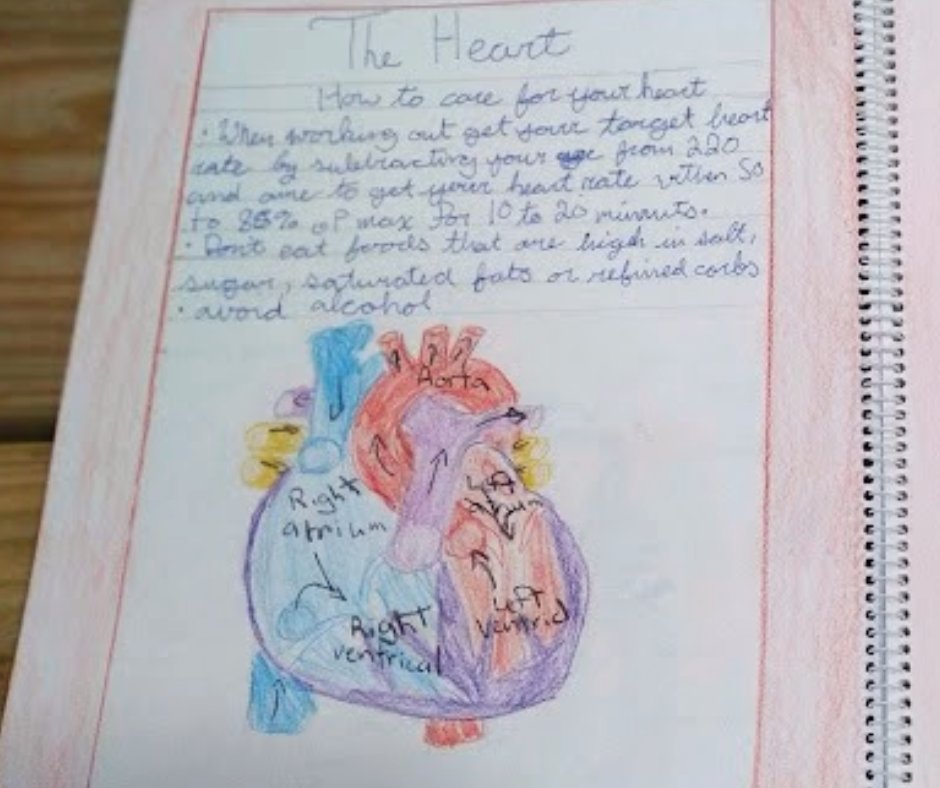 The Heart
How to care for your heart
• When working out get your target heart
rate by subtracting your age from 220
and ame to get your heart rate within 50
to 85% of max for 10 to 20 minuts.
• Don't eat foods that are high in salt,
sugar, saturated fats or refined carbs
• avoid alcohol
Aorta
Right
atrium
Left
atrium
Right
ventrical
Left
ventricl